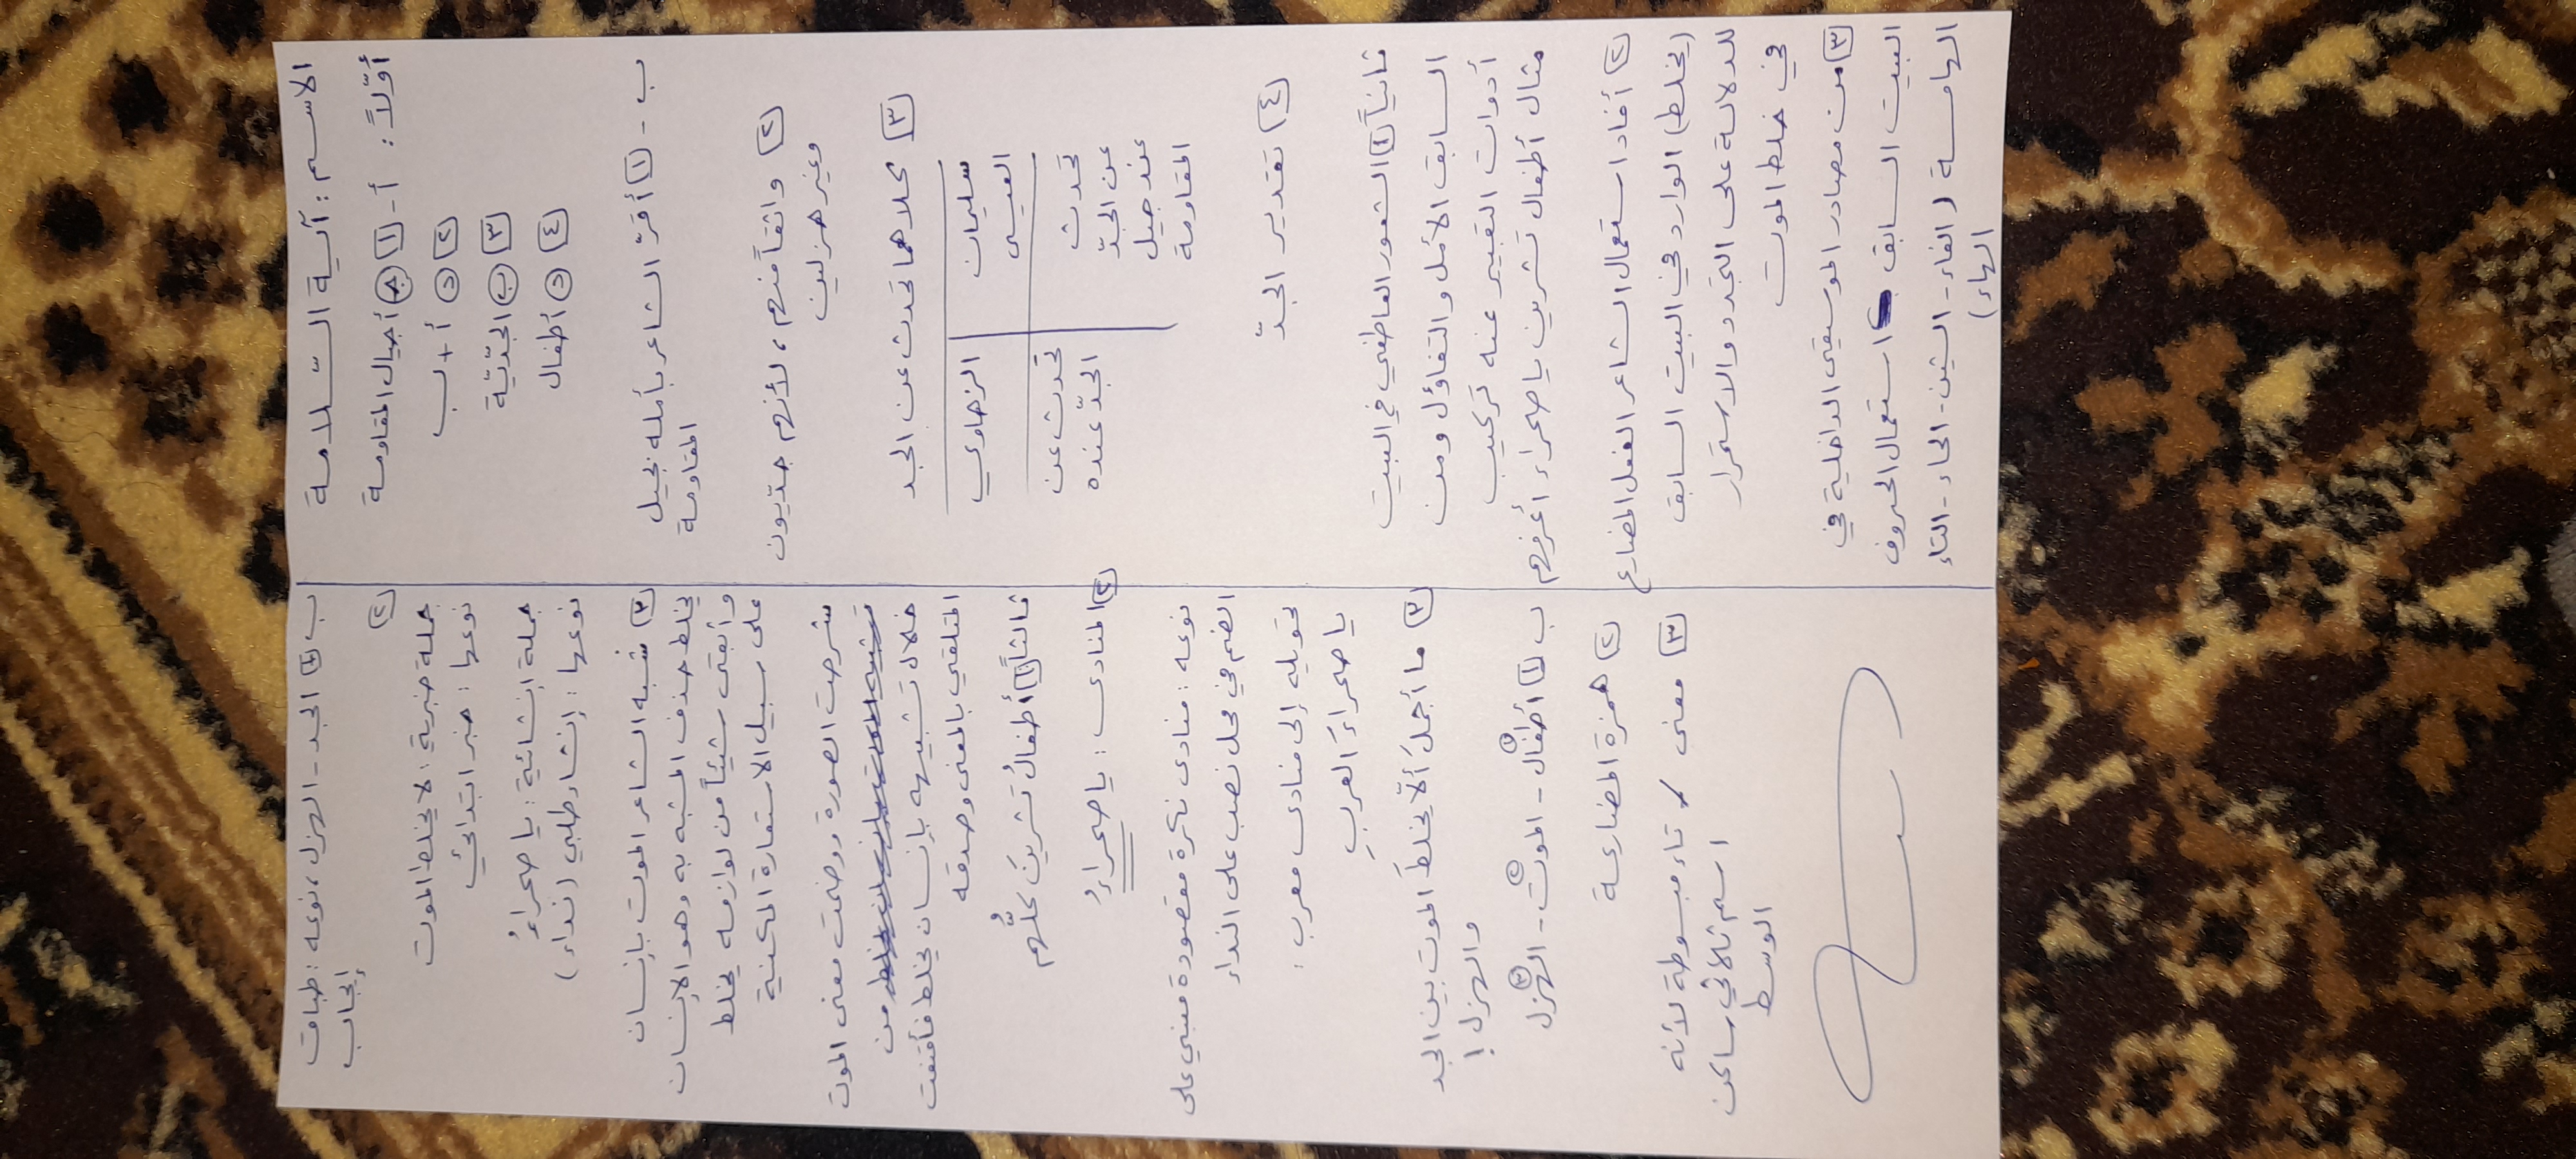 الاسم: آية السّلامة
أوّلاً: أ- ١ أجيال المقاومة
٢ د أ + ب
٣ ب الجدّيّة
٤ د أطفال
ب - ١ أقرّ الشاعر بأمله بجيل
المقاومة
٢ واثقاً منهم، لأنهم جدّيون
وغير هزليين
٣ كلاهما تحدث عن الجد
سليمان العيسى
الزهاوي
تحدث عن الجدّ عند جيل المقاومة
تحدث عن الجدّ عنده
٤ تقدير الجدّ
ثانياً ١ الشعور العاطفي في البيت
السابق الأمل والتفاؤل ومن
أدوات التعبير عنه تركيب
مثال أطفال تشرين يا صحراء أعرفهم
٢ أفاد استعمال الشاعر الفعل المضارع
(يخلط) الوارد في البيت السابق
للدلالة على التجدد والاستمرار
في خلط الموت
٣ من مصادر الموسيقى الداخلية في
البيت السابق استعمال الحروف
الهامسة (الفاء - الشين - الحاء - التاء
الهاء)
ب ١ الجد - الهزل، نوعه: طباق
إيجاب
٢
جملة خبرية: لا يخلط الموت
نوعها: خبر ابتدائي
جملة إنشائية: يا صحراءُ
نوعها: إنشاء طلبي (نداء)
٣ شبه الشاعر الموت بإنسان
يخلط حذف المشبه به وهو الإنسان
وأبقى شيئاً من لوازمه يخلط
على سبيل الاستعارة المكنية
شرحت الصورة ووضحت معنى الموت
من
خلال تشبيهه بإنسان يخلط فأقنعت
المتلقي بالمعنى وصدقه
ثالثاً ١ أطفالُ تشرينَ كلُّهم
٢ المنادى: يا صحراءُ
نوعه: منادى نكرة مقصودة مبني على
الضم في محل نصب على النداء
تحويله إلى منادى معرب:
يا صحراءَ العربِ
٣ ما أجملَ ألّا يخلطَ الموت بين الجد
والهزل!
ب ١ أطفال - الموت - الهزل
٢ همزة المضارعة
٣ معنى تاء مبسوطة لأنه
اسم ثلاثي ساكن
الوسط